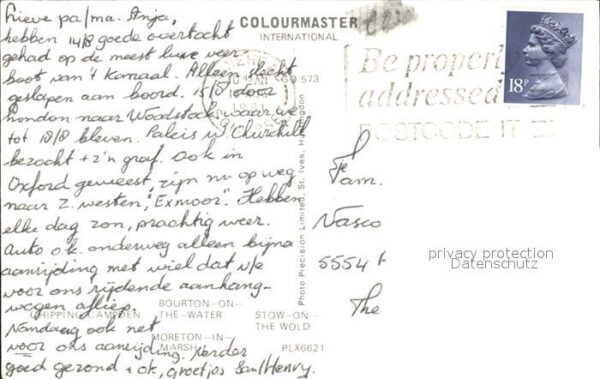 Lieve pa/ma. Anja,
hebben 14/8 goede overtocht
gehad op de meest luxe veer-
boot van 't Kanaal. Alleen slecht
geslapen aan boord. 15/8 door
London naar Woodstock, waar we
tot 18/8 bleven. Paleis v. Churchill
bezocht + z'n graf. Ook in
Oxford geweest, zijn nu op weg
naar Z. westen, "Exmoor". Hebben
elke dag zon, prachtig weer.
Auto o.k. onderweg alleen bijna
aanrijding met wiel dat v/e
voor ons rijdende aanhang-
wagen afliep.
Vandaag ook net
voor ons aanrijding. Verder
goed gezond + ok, groetjes San/Henry.
COLOURMASTER
INTERNATIONAL
573
1981
Be properly
addressed
POSTCODE IT
18P
Photo Precision Limited, St. Ives, Huntingdon
CHIPPING CAMPDEN
BOURTON-ON-
THE-WATER
STOW-ON-
THE WOLD
MORETON-IN-
MARSH
PLX6621
Fam.
Vasco
5554
The
privacy protection
Datenschutz